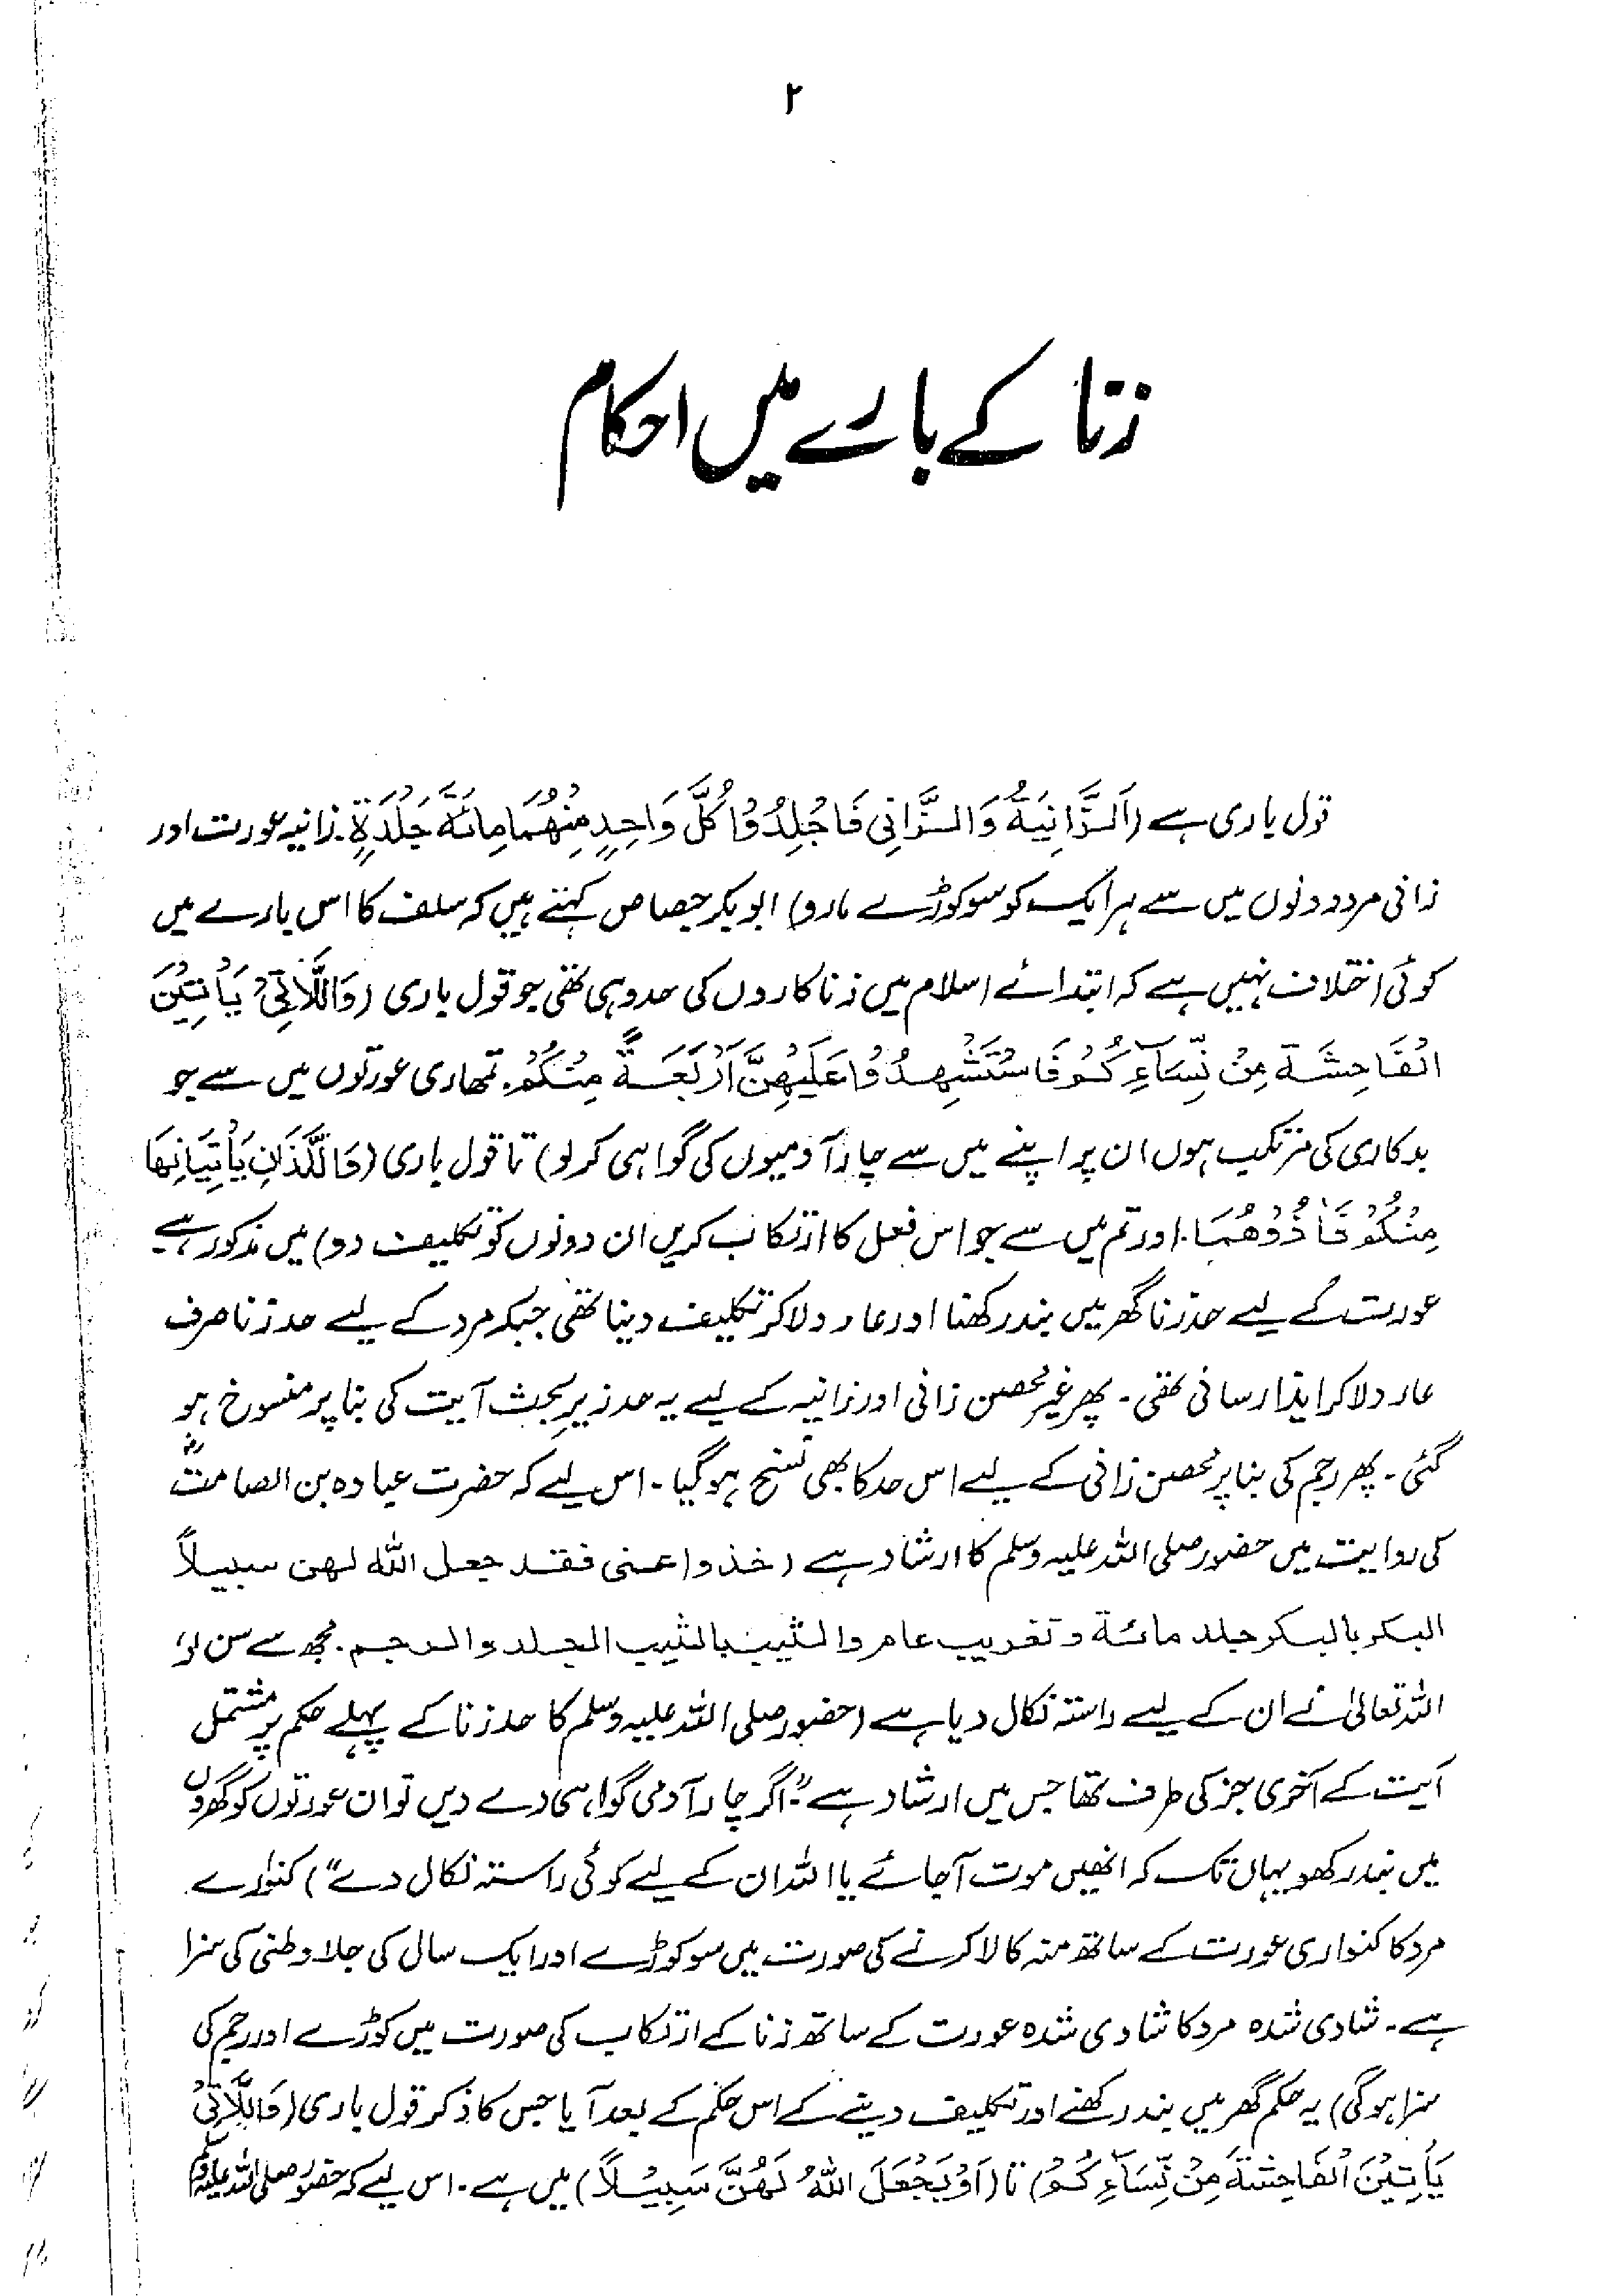 ۲
زنا کے بارے میں احکام
قول باری ہے (اَلزَّانِیَۃُ وَالزَّانِی فَاجْلِدُوْا کُلَّ وَاحِدٍ مِنْھُمَا مِائَۃَ جَلْدَۃٍ۔ زانیہ عورت اور
زانی مرد دونوں میں سے ہر ایک کو سو کوڑے مارو) ابوبکر جصاص کہتے ہیں کہ سلف کا اس بارے میں
کوئی اختلاف نہیں ہے کہ ابتدائے اسلام میں زنا کاروں کی حد وہی تھی جو قول باری (وَاللَّاتِیْ یَأْتِیْنَ
الْفَاحِشَۃَ مِنْ نِّسَآءِکُمْ فَاسْتَشْھِدُوْا عَلَیْھِنَّ اَرْبَعَۃً مِنْکُمْ۔ تمھاری عورتوں میں سے جو
بدکاری کی مرتکب ہوں ان پر اپنے میں سے چار آدمیوں کی گواہی کر لو) تا قول باری (وَاللَّذَانِ یَأْتِیَانِھَا
مِنْکُمْ فَاٰذُوْھُمَا۔ اور تم میں سے جو اس فعل کا ارتکاب کریں ان دونوں کو تکلیف دو) میں مذکور ہے
عورت کے لیے حد زنا گھر میں بند رکھنا اور عار دلا کر تکلیف دینا تھی جبکہ مرد کے لیے حد زنا صرف
عار دلا کر ایذا رسانی تھی۔ پھر غیر محصن زانی اور زانیہ کے لیے یہ حد زیرِ بحث آیت کی بنا پر منسوخ ہو
گئی۔ پھر رجم کی بنا پر محصن زانی کے لیے اس حد کا بھی نسخ ہو گیا۔ اس لیے کہ حضرت عبادہ بن الصامتؓ
کی روایت میں حضور صلی اللہ علیہ وسلم کا ارشاد ہے (خذوا عنی فقد جعل اللہ لھن سبیلاً
البکر بالبکر جلد مائۃ وتغریب عام والثیب بالثیب الجلد والرجم۔ مجھ سے سن لو،
اللہ تعالیٰ نے ان کے لیے راستہ نکال دیا ہے (حضور صلی اللہ علیہ وسلم کا حد زنا کے پہلے حکم پر مشتمل
آیت کے آخری جز کی طرف تھا جس میں ارشاد ہے "اگر چار آدمی گواہی دے دیں تو ان عورتوں کو گھروں
میں بند رکھو یہاں تک کہ انھیں موت آ جائے یا اللہ ان کے لیے کوئی راستہ نکال دے") کنوارے
مرد کا کنواری عورت کے ساتھ منہ کالا کرنے کی صورت میں سو کوڑے اور ایک سال کی جلاوطنی کی سزا
ہے۔ شادی شدہ مرد کا شادی شدہ عورت کے ساتھ زنا کے ارتکاب کی صورت میں کوڑے اور رجم کی
سزا ہوگی) یہ حکم گھر میں بند رکھنے اور تکلیف دینے کے اس حکم کے بعد آیا جس کا ذکر قول باری (وَاللَّاتِیْ
یَأْتِیْنَ الْفَاحِشَۃَ مِنْ نِّسَآءِکُمْ) تا (اَوْ یَجْعَلَ اللہُ لَھُنَّ سَبِیْلاً) میں ہے۔ اس لیے کہ حضور صلی اللہ علیہ وسلم